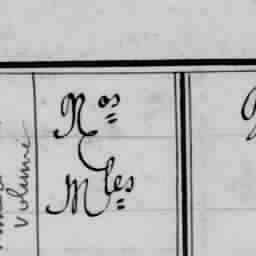 Nos
Mles
volume